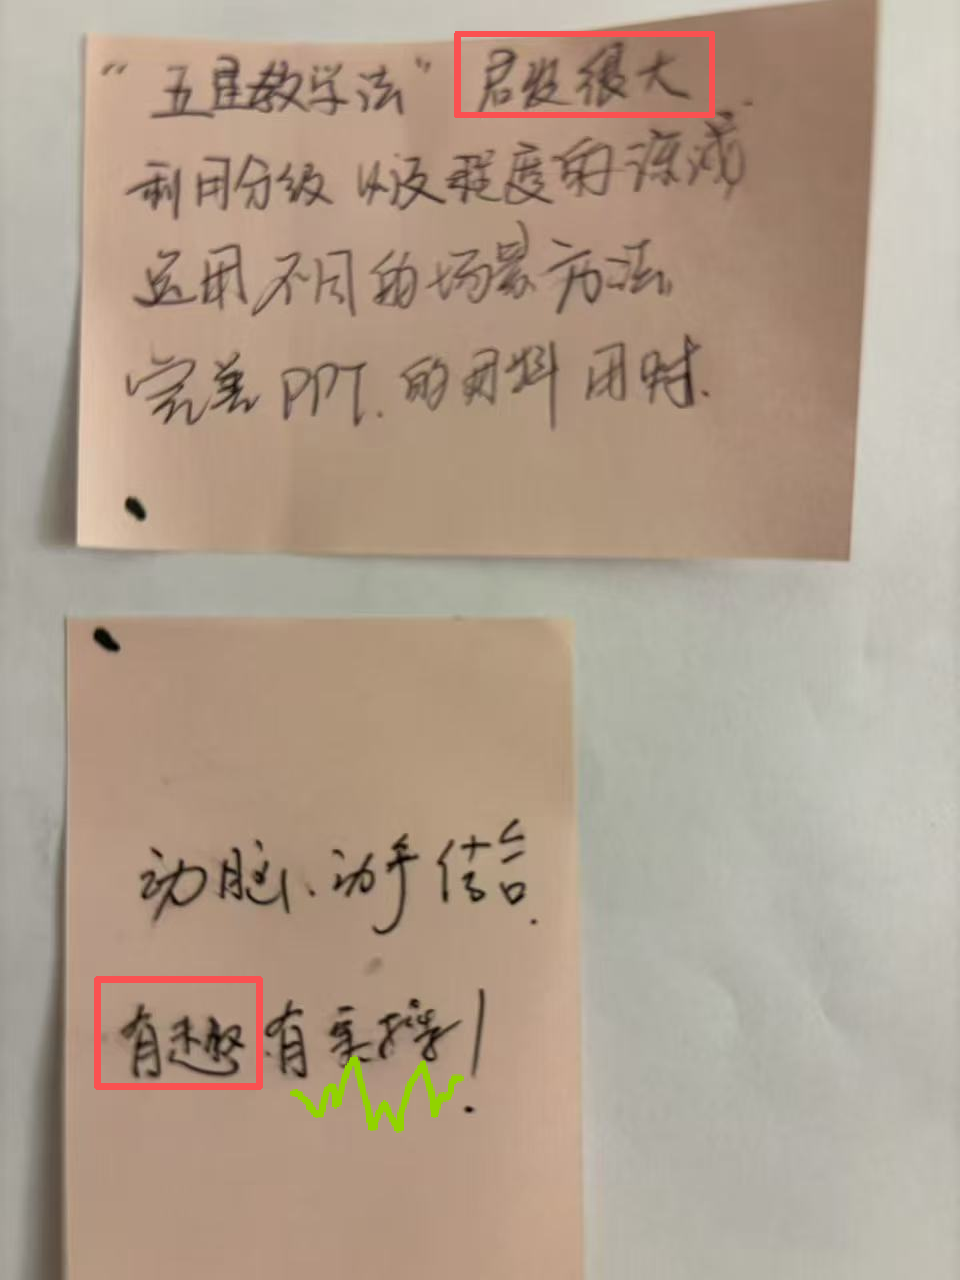 “五星教学法” 启发很大.
利用分级以及程度的递减
运用不同的场景方法.
完善PPT.的用料用时.
动脑、动手结合.
有趣有实操!